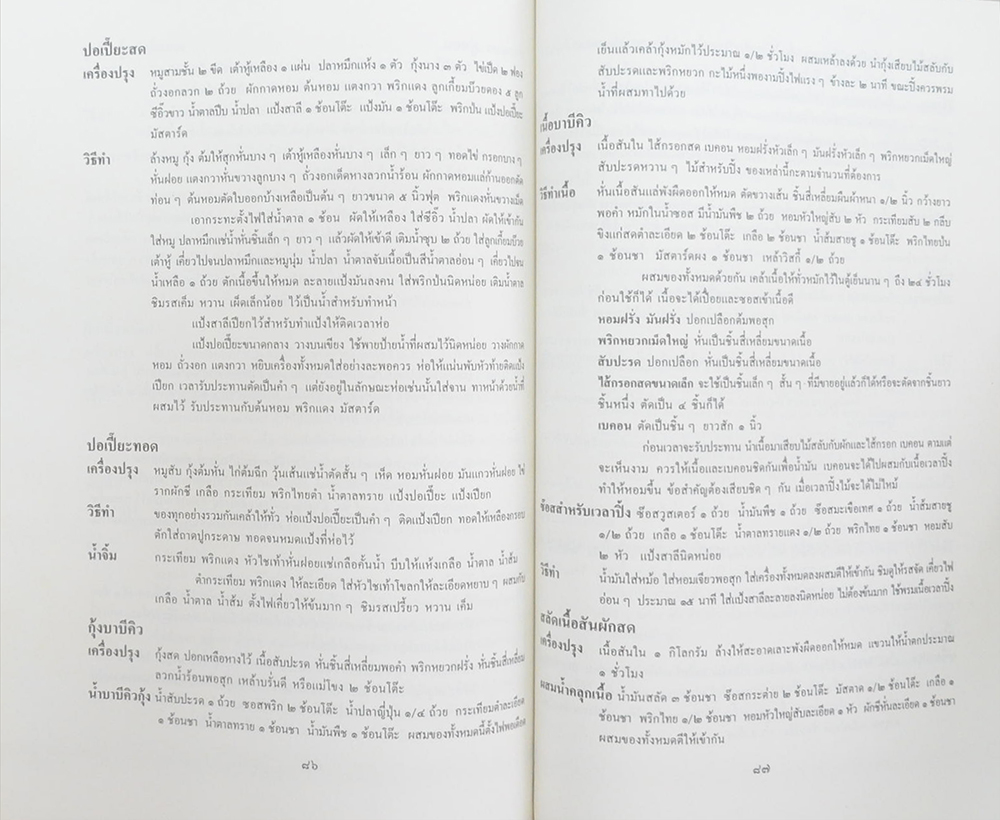 ปอเปี๊ยะสด
เครื่องปรุง หมูสามชั้น ๒ ขีด เต้าหู้เหลือง ๑ แผ่น ปลาหมึกแห้ง ๑ ตัว กุ้งนาง ๓ ตัว ไข่เป็ด ๒ ฟอง
ถั่วงอกลวก ๒ ถ้วย ผักกาดหอม ต้นหอม แตงกวา พริกแดง ลูกเกี้ยมบ๊วยดอง ๕ ลูก
ซีอิ๊วขาว น้ำตาลปีบ น้ำปลา แป้งสาลี ๑ ช้อนโต๊ะ แป้งมัน ๑ ช้อนโต๊ะ พริกป่น แป้งปอเปี๊ยะ
มัสตาร์ด
วิธีทำ ล้างหมู กุ้ง ต้มให้สุกหั่นบาง ๆ เต้าหู้เหลืองหั่นบาง ๆ เล็ก ๆ ยาว ๆ ทอดไข่ กรอกบาง ๆ
หั่นฝอย แตงกวาหั่นขวางลูกบาง ๆ ถั่วงอกเด็ดหางลวกน้ำร้อน ผักกาดหอมแล่ก้านออกตัด
ท่อน ๆ ต้นหอมตัดใบออกบ้างเหลือเป็นต้น ๆ ยาวขนาด ๕ นิ้วฟุต พริกแดงหั่นขวางเม็ด
เอากระทะตั้งไฟใส่น้ำตาล ๑ ช้อน ผัดให้เหลือง ใส่ซีอิ๊ว น้ำปลา ผัดให้เข้ากัน
ใส่หมู ปลาหมึกแช่น้ำหั่นชิ้นเล็ก ๆ ยาว ๆ แล้วผัดให้เข้าดี เติมน้ำซุบ ๒ ถ้วย ใส่ลูกเกี้ยมบ๊วย
เต้าหู้ เคี่ยวไปจนปลาหมึกและหมูนุ่ม น้ำปลา น้ำตาลจับเนื้อเป็นสีน้ำตาลอ่อน ๆ เคี่ยวไปจน
น้ำเหลือ ๑ ถ้วย ตักเนื้อขึ้นให้หมด ละลายแป้งมันลงคน ใส่พริกป่นนิดหน่อย เติมน้ำตาล
ชิมรสเค็ม หวาน เผ็ดเล็กน้อย ไว้เป็นน้ำสำหรับทำหน้า
แป้งสาลีเปียกไว้สำหรับทำแป้งให้ติดเวลาห่อ
แป้งปอเปี๊ยะขนาดกลาง วางบนเขียง ใช้พายป้ายน้ำที่ผสมไว้นิดหน่อย วางผักกาด
หอม ถั่วงอก แตงกวา หยิบเครื่องทั้งหมดใส่อย่างละพอควร ห่อให้แน่นพับหัวท้ายติดแป้ง
เปียก เวลารับประทานตัดเป็นคำ ๆ แต่ยังอยู่ในลักษณะห่อเช่นนั้นใส่จาน ทาหน้าด้วยน้ำที่
ผสมไว้ รับประทานกับต้นหอม พริกแดง มัสตาร์ด
ปอเปี๊ยะทอด
เครื่องปรุง หมูสับ กุ้งต้มหั่น ไก่ต้มฉีก วุ้นเส้นแช่น้ำตัดสั้น ๆ เห็ด หอมหั่นฝอย มันแกวหั่นฝอย ไข่
รากผักชี เกลือ กระเทียม พริกไทยดำ น้ำตาลทราย แป้งปอเปี๊ยะ แป้งเปียก
วิธีทำ ของทุกอย่างรวมกันเคล้าให้ทั่ว ห่อแป้งปอเปี๊ยะเป็นคำ ๆ ติดแป้งเปียก ทอดให้เหลืองกรอบ
ตักใส่ถาดปูกระดาษ ทอดจนหมดแป้งที่ห่อไว้
น้ำจิ้ม กระเทียม พริกแดง หัวไชเท้าหั่นฝอยแช่เกลือคั้นน้ำ บีบให้แห้งเกลือ น้ำตาล น้ำส้ม
ตำกระเทียม พริกแดง ให้ละเอียด ใส่หัวไชเท้าโขลกให้ละเอียดหยาบ ๆ ผสมกับ
เกลือ น้ำตาล น้ำส้ม ตั้งไฟเคี่ยวให้ข้นมาก ๆ ชิมรสเปรี้ยว หวาน เค็ม
กุ้งบาบีคิว
เครื่องปรุง กุ้งสด ปอกเปลือกหางไว้ เนื้อสับปะรด หั่นชิ้นสี่เหลี่ยมพอคำ พริกหยวกฝรั่ง หั่นชิ้นสี่เหลี่ยม
ลวกน้ำร้อนพอสุก เหล้าบรั่นดี หรือแม่โขง ๒ ช้อนโต๊ะ
น้ำบาบีคิวกุ้ง น้ำสับปะรด ๑ ถ้วย ซอสพริก ๒ ช้อนโต๊ะ น้ำปลาญี่ปุ่น ๑/๔ ถ้วย กระเทียมตำละเอียด
๑ ช้อนชา น้ำตาลทราย ๑ ช้อนชา น้ำมันพืช ๑ ช้อนโต๊ะ ผสมของทั้งหมดนี้ตั้งไฟพอเดือด
๘๖
เย็นแล้วเคล้ากุ้งหมักไว้ประมาณ ๑/๒ ชั่วโมง ผสมเหล้าลงด้วย นำกุ้งเสียบไม้สลับกับ
สับปะรดและพริกหยวก กะไม้หนึ่งพองามปิ้งไฟแรง ๆ ข้างละ ๒ นาที ขณะปิ้งควรพรม
น้ำที่ผสมทาไปด้วย
เนื้อบาบีคิว
เครื่องปรุง เนื้อสันใน ไส้กรอกสด เบคอน หอมฝรั่งหัวเล็ก ๆ มันฝรั่งหัวเล็ก ๆ พริกหยวกเม็ดใหญ่
สับปะรดหวาน ๆ ไม้สำหรับปิ้ง ของเหล่านี้กะตามจำนวนที่ต้องการ
วิธีทำเนื้อ หั่นเนื้อสันแล่พังผืดออกให้หมด ตัดขวางเส้น ชิ้นสี่เหลี่ยมผืนผ้าหนา ๑/๒ นิ้ว กว้างยาว
พอคำ หมักในน้ำซอส มีน้ำมันพืช ๒ ถ้วย หอมหัวใหญ่สับ ๒ หัว กระเทียมสับ ๒ กลีบ
ขิงแก่สดตำละเอียด ๒ ช้อนโต๊ะ เกลือ ๒ ช้อนชา น้ำส้มสายชู ๑ ช้อนโต๊ะ พริกไทยป่น
๑ ช้อนชา มัสตาร์ดผง ๑ ช้อนชา เหล้าวิสกี้ ๑/๒ ถ้วย
ผสมของทั้งหมดด้วยกัน เคล้าเนื้อให้ทั่วหมักไว้ในตู้เย็นนาน ๆ ถึง ๒๔ ชั่วโมง
ก่อนใช้ก็ได้ เนื้อจะได้เปื่อยและซอสเข้าเนื้อดี
หอมฝรั่ง มันฝรั่ง ปอกเปลือกต้มพอสุก
พริกหยวกเม็ดใหญ่ หั่นเป็นชิ้นสี่เหลี่ยมขนาดเนื้อ
สับปะรด ปอกเปลือก หั่นเป็นชิ้นสี่เหลี่ยมขนาดเนื้อ
ไส้กรอกสดขนาดเล็ก จะใช้เป็นชิ้นเล็ก ๆ สั้น ๆ ที่มีขายอยู่แล้วก็ได้หรือจะตัดจากชิ้นยาว
ชิ้นหนึ่ง ตัดเป็น ๔ ชิ้นก็ได้
เบคอน ตัดเป็นชิ้น ๆ ยาวสัก ๑ นิ้ว
ก่อนเวลาจะรับประทาน นำเนื้อมาเสียบไม้สลับกับผักและไส้กรอก เบคอน ตามแต่
จะเห็นงาม ควรให้เนื้อและเบคอนชิดกันเพื่อน้ำมัน เบคอนจะได้ไปผสมกับเนื้อเวลาปิ้ง
ทำให้หอมขึ้น ข้อสำคัญต้องเสียบชิด ๆ กัน เมื่อเวลาปิ้งไม้จะได้ไม่ไหม้
ซ้อสสำหรับเวลาปิ้ง ซ๊อสวูสเตอร์ ๑ ถ้วย น้ำมันพืช ๑ ถ้วย ซ๊อสมะเขือเทศ ๑ ถ้วย น้ำส้มสายชู
๑/๒ ถ้วย เกลือ ๑ ช้อนโต๊ะ น้ำตาลทรายแดง ๑/๒ ถ้วย พริกไทย ๑ ช้อนชา หอมสับ
๒ หัว แป้งสาลีนิดหน่อย
วิธีทำ น้ำมันใส่หม้อ ใส่หอมเจียวพอสุก ใส่เครื่องทั้งหมดลงผสมดีให้เข้ากัน ชิมดูให้รสจัด เคี่ยวไฟ
อ่อน ๆ ประมาณ ๑๕ นาที ใส่แป้งสาลีละลายลงนิดหน่อย ไม่ต้องข้นมาก ใช้พรมเนื้อเวลาปิ้ง
สลัดเนื้อสันผักสด
เครื่องปรุง เนื้อสันใน ๑ กิโลกรัม ล้างให้สะอาดเลาะพังผืดออกให้หมด แขวนให้น้ำตกประมาณ
๑ ชั่วโมง
ผสมน้ำคลุกเนื้อ น้ำมันสลัด ๓ ช้อนชา ซ๊อสกระต่าย ๒ ช้อนโต๊ะ มัสตาด ๑/๒ ช้อนโต๊ะ เกลือ ๑
ช้อนชา พริกไทย ๑/๒ ช้อนชา หอมหัวใหญ่สับละเอียด ๑ หัว ผักชีหั่นละเอียด ๑ ช้อนชา
ผสมของทั้งหมดตีให้เข้ากัน
๘๗